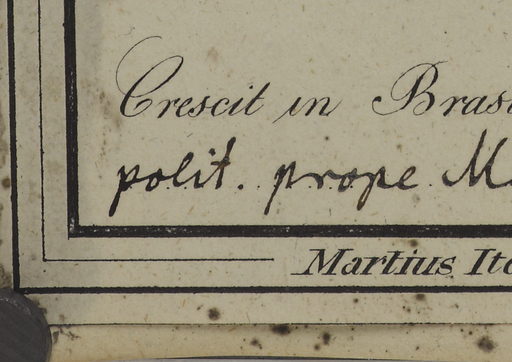 Crescit in Bras
polit. prope M
Martius It